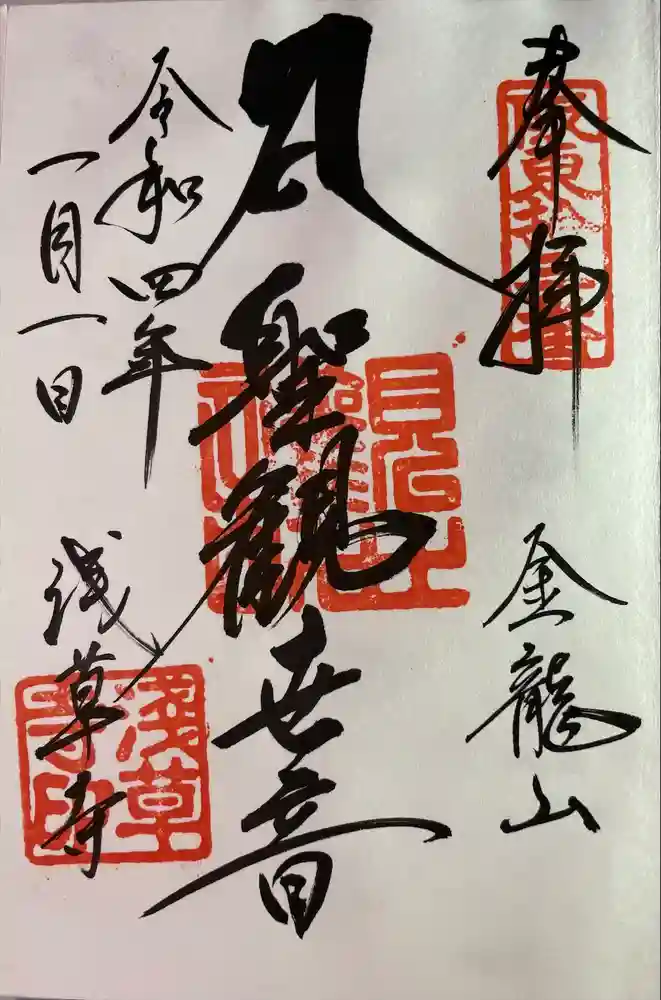 奉拝
金龍山
聖観世音
令和四年
一月一日
浅草寺
坂東拾三番
浅草
寺印